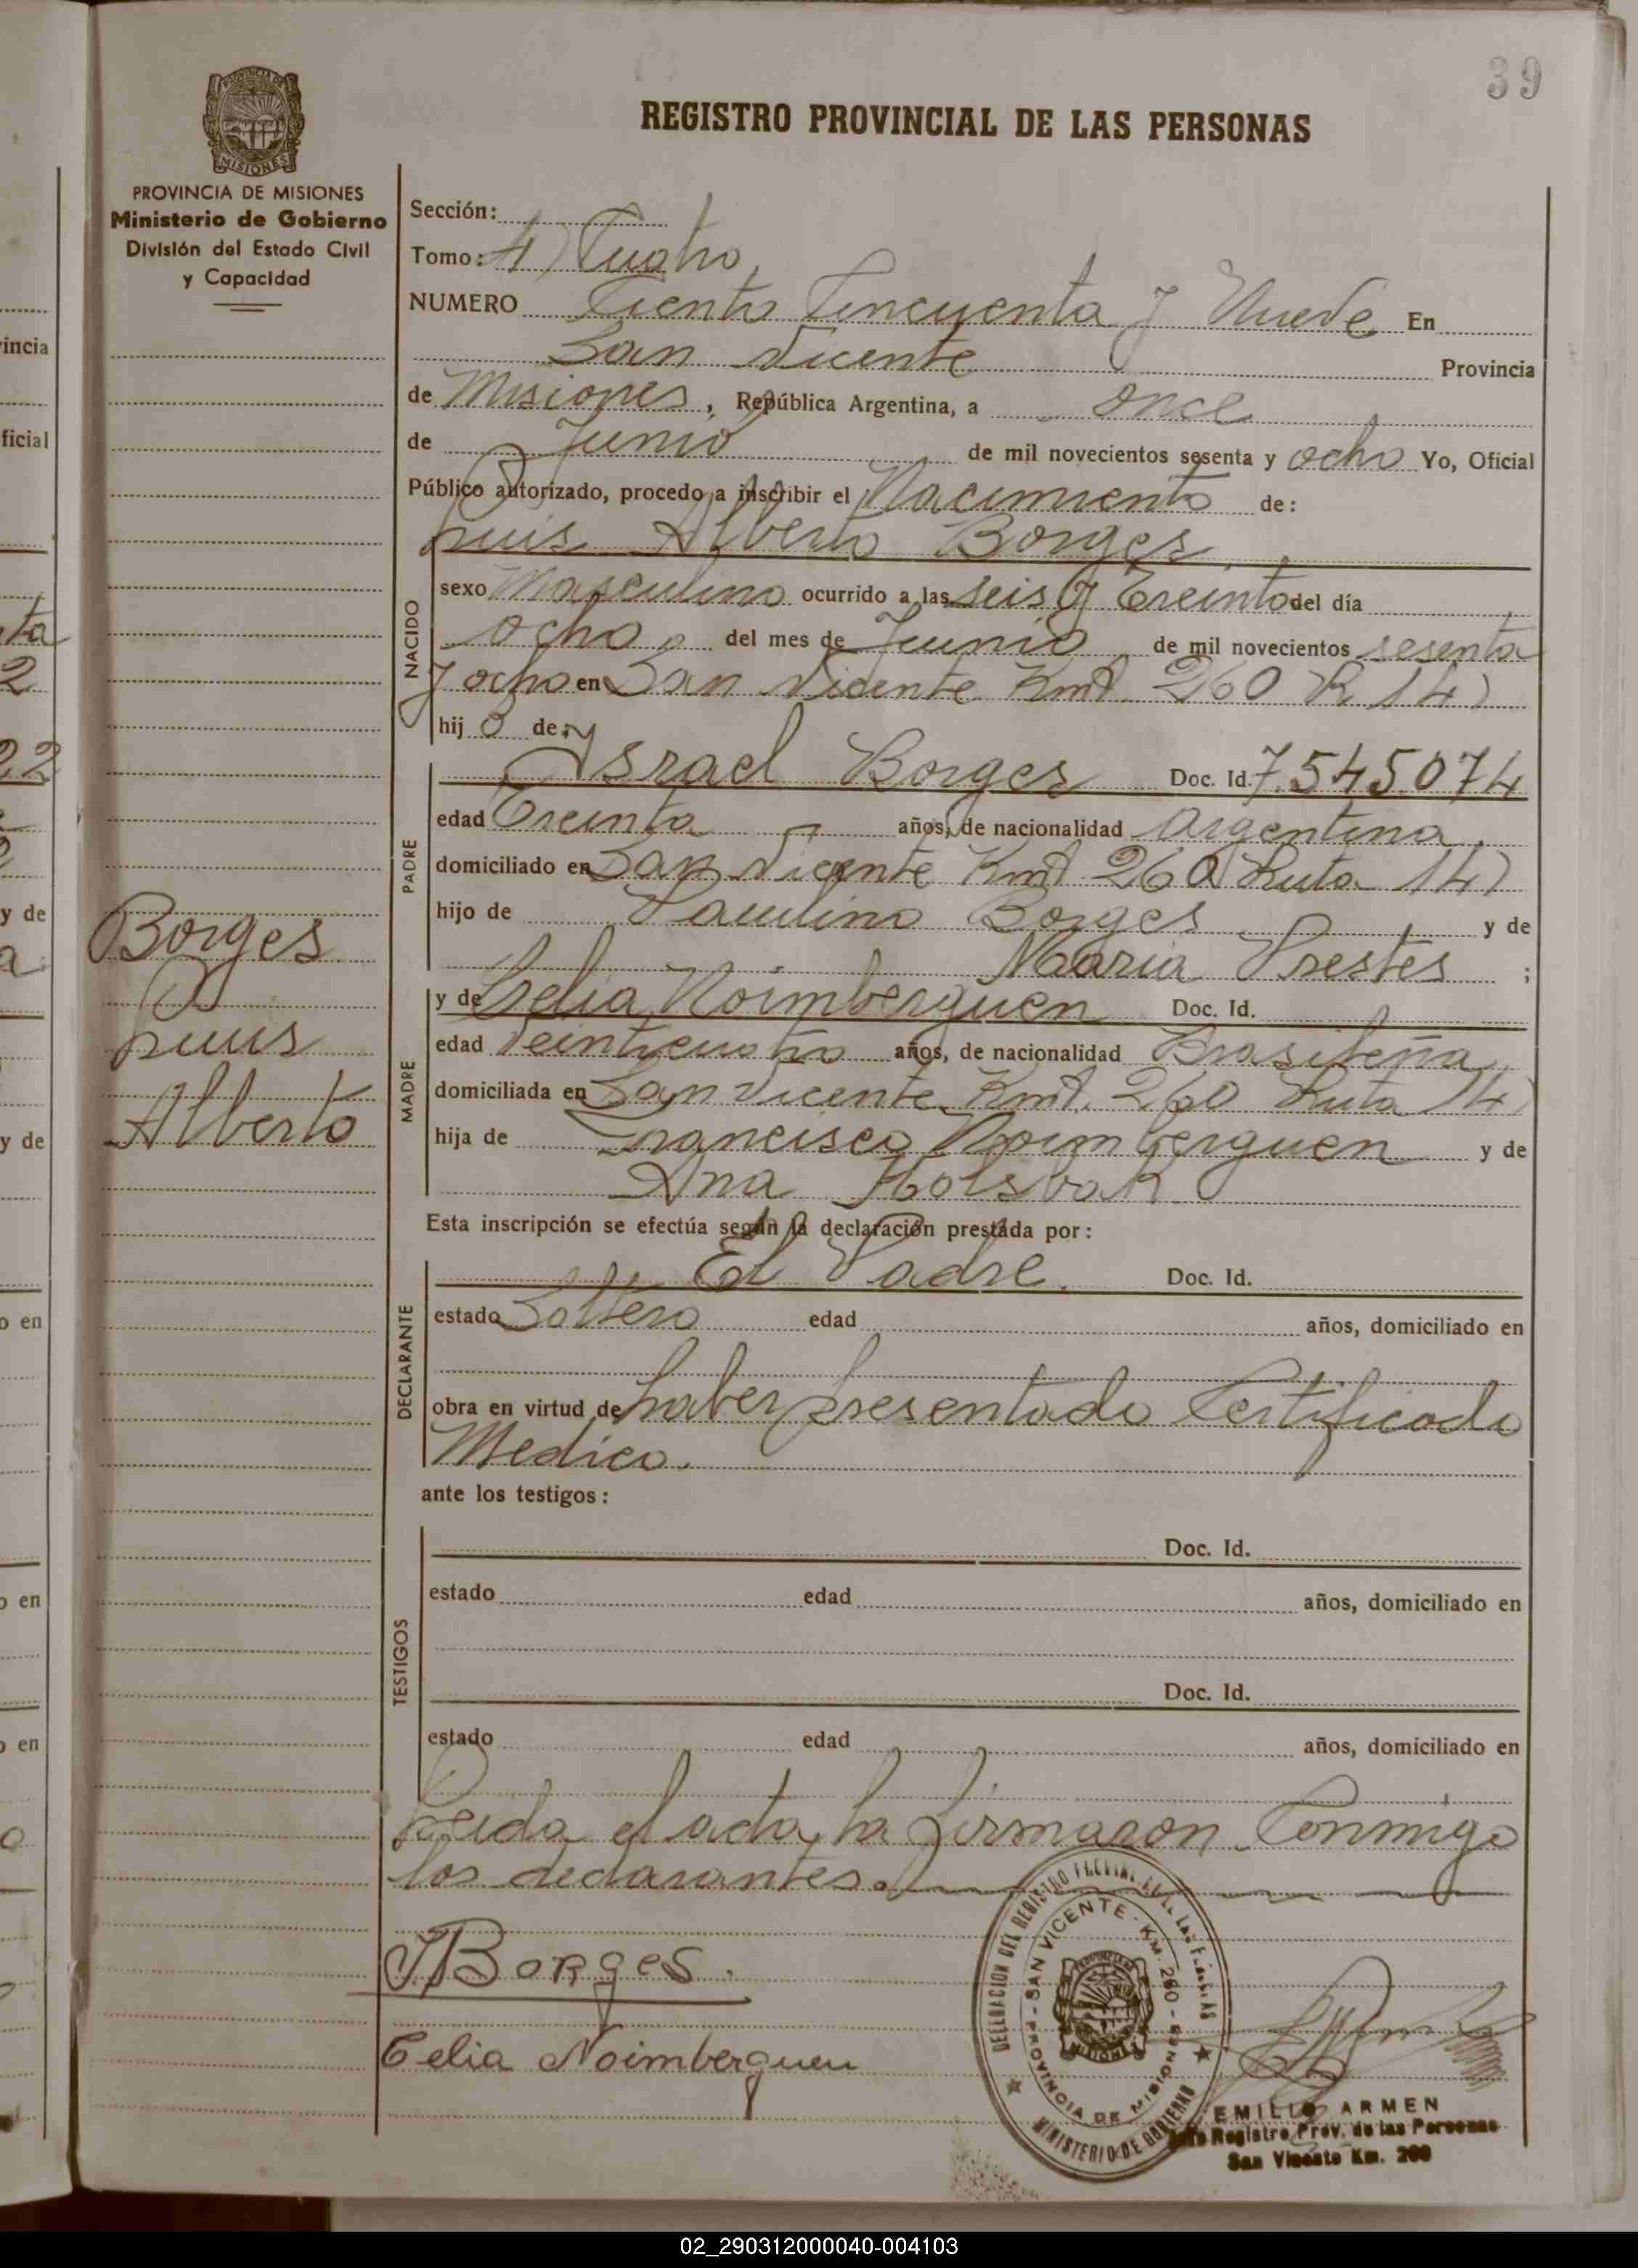 39
PROVINCIA DE
MISIONES
REGISTRO PROVINCIAL DE LAS PERSONAS
PROVINCIA DE MISIONES
Ministerio de Gobierno
División del Estado Civil
y Capacidad
Sección:
Tomo: 4) Cuatro
NUMERO Ciento Cincuenta y Nueve En
San Vicente Provincia
de Misiones, República Argentina, a once
de Junio de mil novecientos sesenta y ocho Yo, Oficial
Público autorizado, procedo a inscribir el Nacimiento de:
Luis Alberto Borges
NACIDO
sexo Masculino ocurrido a las seis y Treinta del día
ocho del mes de Junio de mil novecientos sesenta
y ocho en San Vicente Kmt. 260 R 14)
hij o de
PADRE
Israel Borges Doc. Id. 7.545.074
edad Treinta años, de nacionalidad Argentina
domiciliado en San Vicente Kmt 260 Ruta 14)
hijo de Paulino Borges y de
Maria Prestes ;
MADRE
y de Celia Noimberguen Doc. Id.
edad Veinticuatro años, de nacionalidad Brasileña
domiciliada en San Vicente Kmt. 260 Ruta 14)
hija de Francisco Noimberguen y de
Ana Holsbak
Borges
Luis
Alberto
Esta inscripción se efectúa según la declaración prestada por:
DECLARANTE
El Padre. Doc. Id.
estado Soltero edad años, domiciliado en
obra en virtud de haber presentado Certificado
Medico.
ante los testigos:
TESTIGOS
Doc. Id.
estado edad años, domiciliado en
Doc. Id.
estado edad años, domiciliado en
Leida el acta, la firmaron Conmigo
los declarantes.
IBorges.
Celia Noimberguen
DELEGACION DEL REGISTRO PROVINCIAL DE LAS PERSONAS
SAN VICENTE - KM. 260 - PROVINCIA DE MISIONES
MINISTERIO DE GOBIERNO
MISIONES
EMILIO ARMEN
Registro Prov. de las Personas
San Vicente Km. 260
incia
ficial
ta
2
22
y de
a
y de
o en
o en
o en
o
02_290312000040-004103